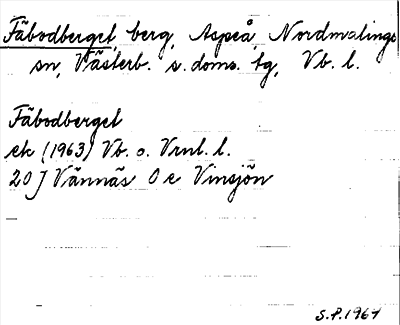 Fäbodberget, berg, Aspeå, Nordmalings
sn, Västerb. s. doms. tg, Vb. l.
Fäbodberget
ek (1963) Vb. o. Vrnl. l.
20 J Vännäs O e Vinsjön
S.P. 1967